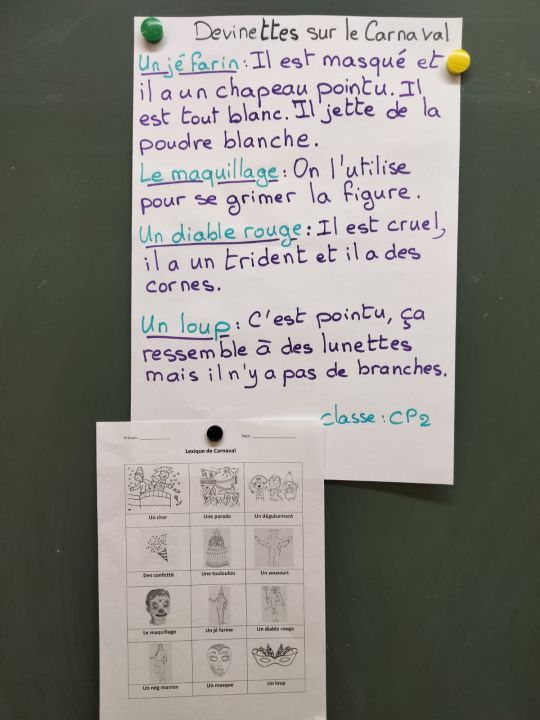 Devinettes sur le Carnaval
Un jé farin : Il est masqué et
il a un chapeau pointu. Il
est tout blanc. Il jette de la
poudre blanche.
Le maquillage : On l'utilise
pour se grimer la figure.
Un diable rouge : Il est cruel,
il a un trident et il a des
cornes.
Un loup : C'est pointu, ça
ressemble à des lunettes
mais il n'y a pas de branches.
classe : CP2
Prénom : Date :
Lexique de Carnaval
Un char Une parade Un déguisement
Des confettis Une touloulou Un sousouri
Le maquillage Un jé farine Un diable rouge
Un nèg marron Un masque Un loup